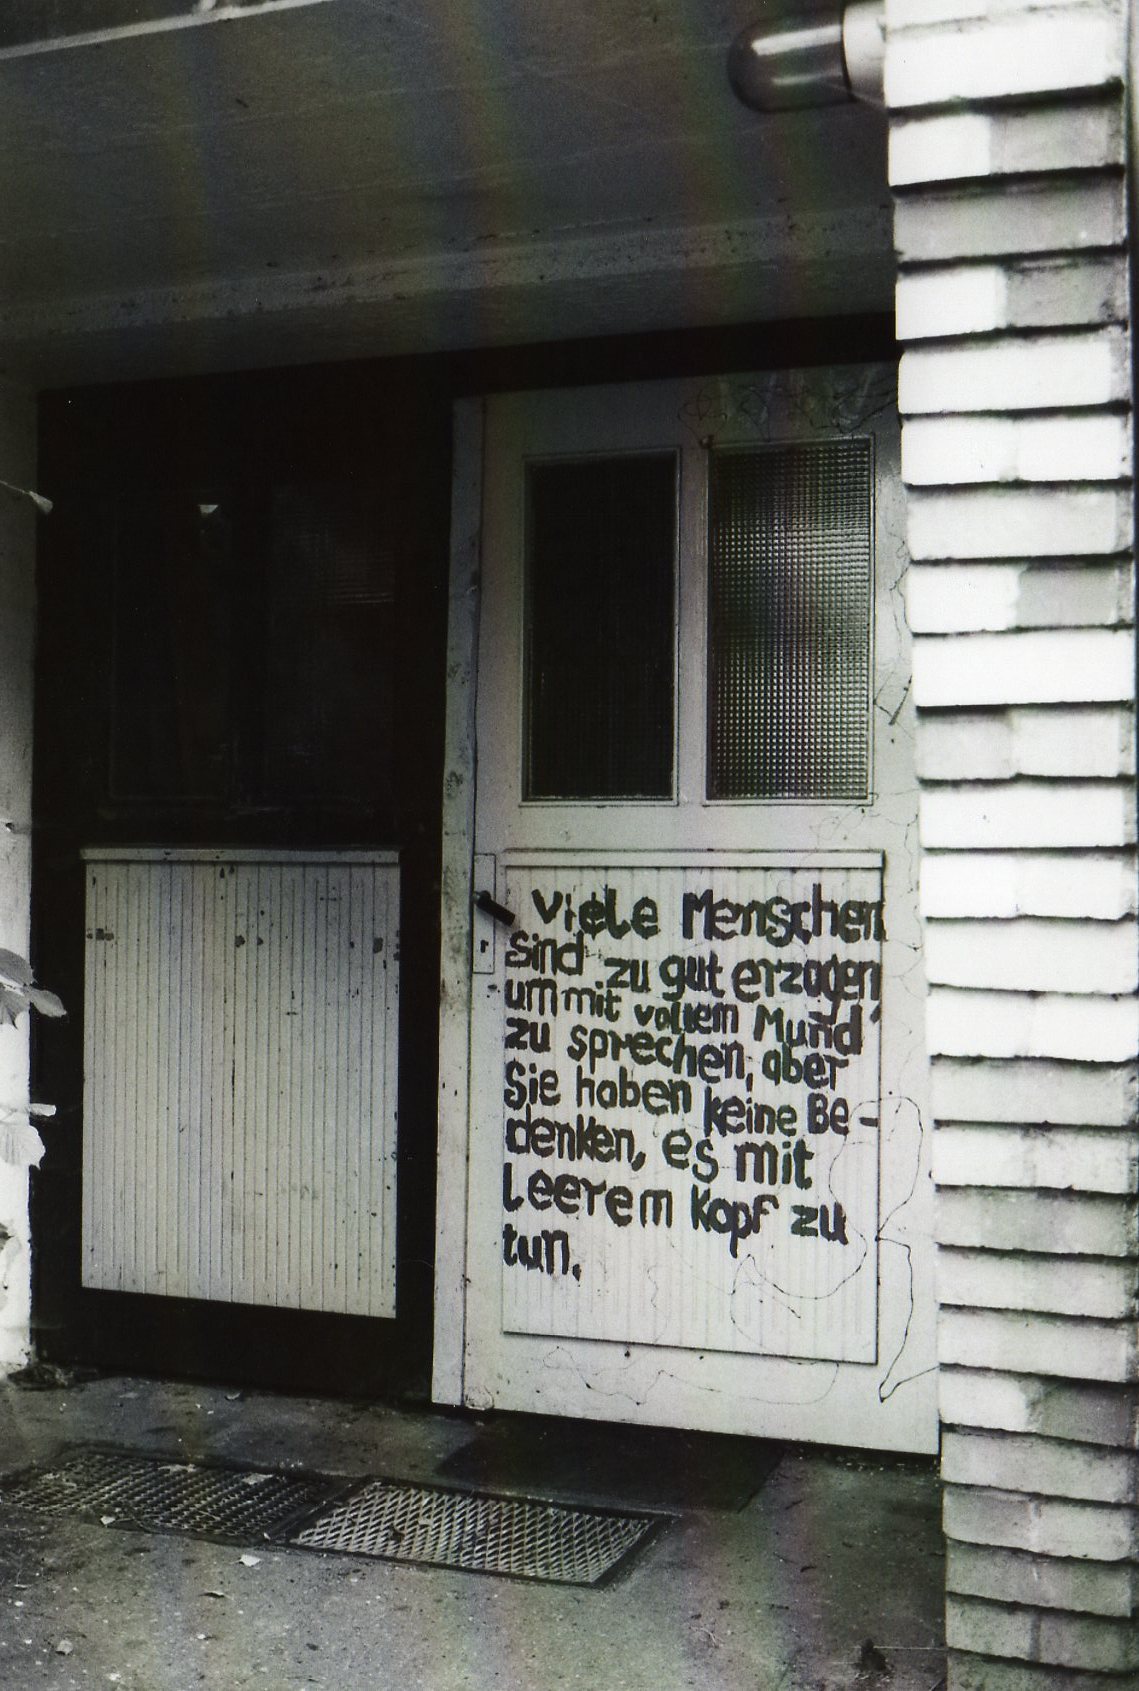 Viele Menschen
sind zu gut erzogen
um mit vollem Mund
zu sprechen, aber
Sie haben keine Be-
denken, es mit
Leerem Kopf zu
tun.